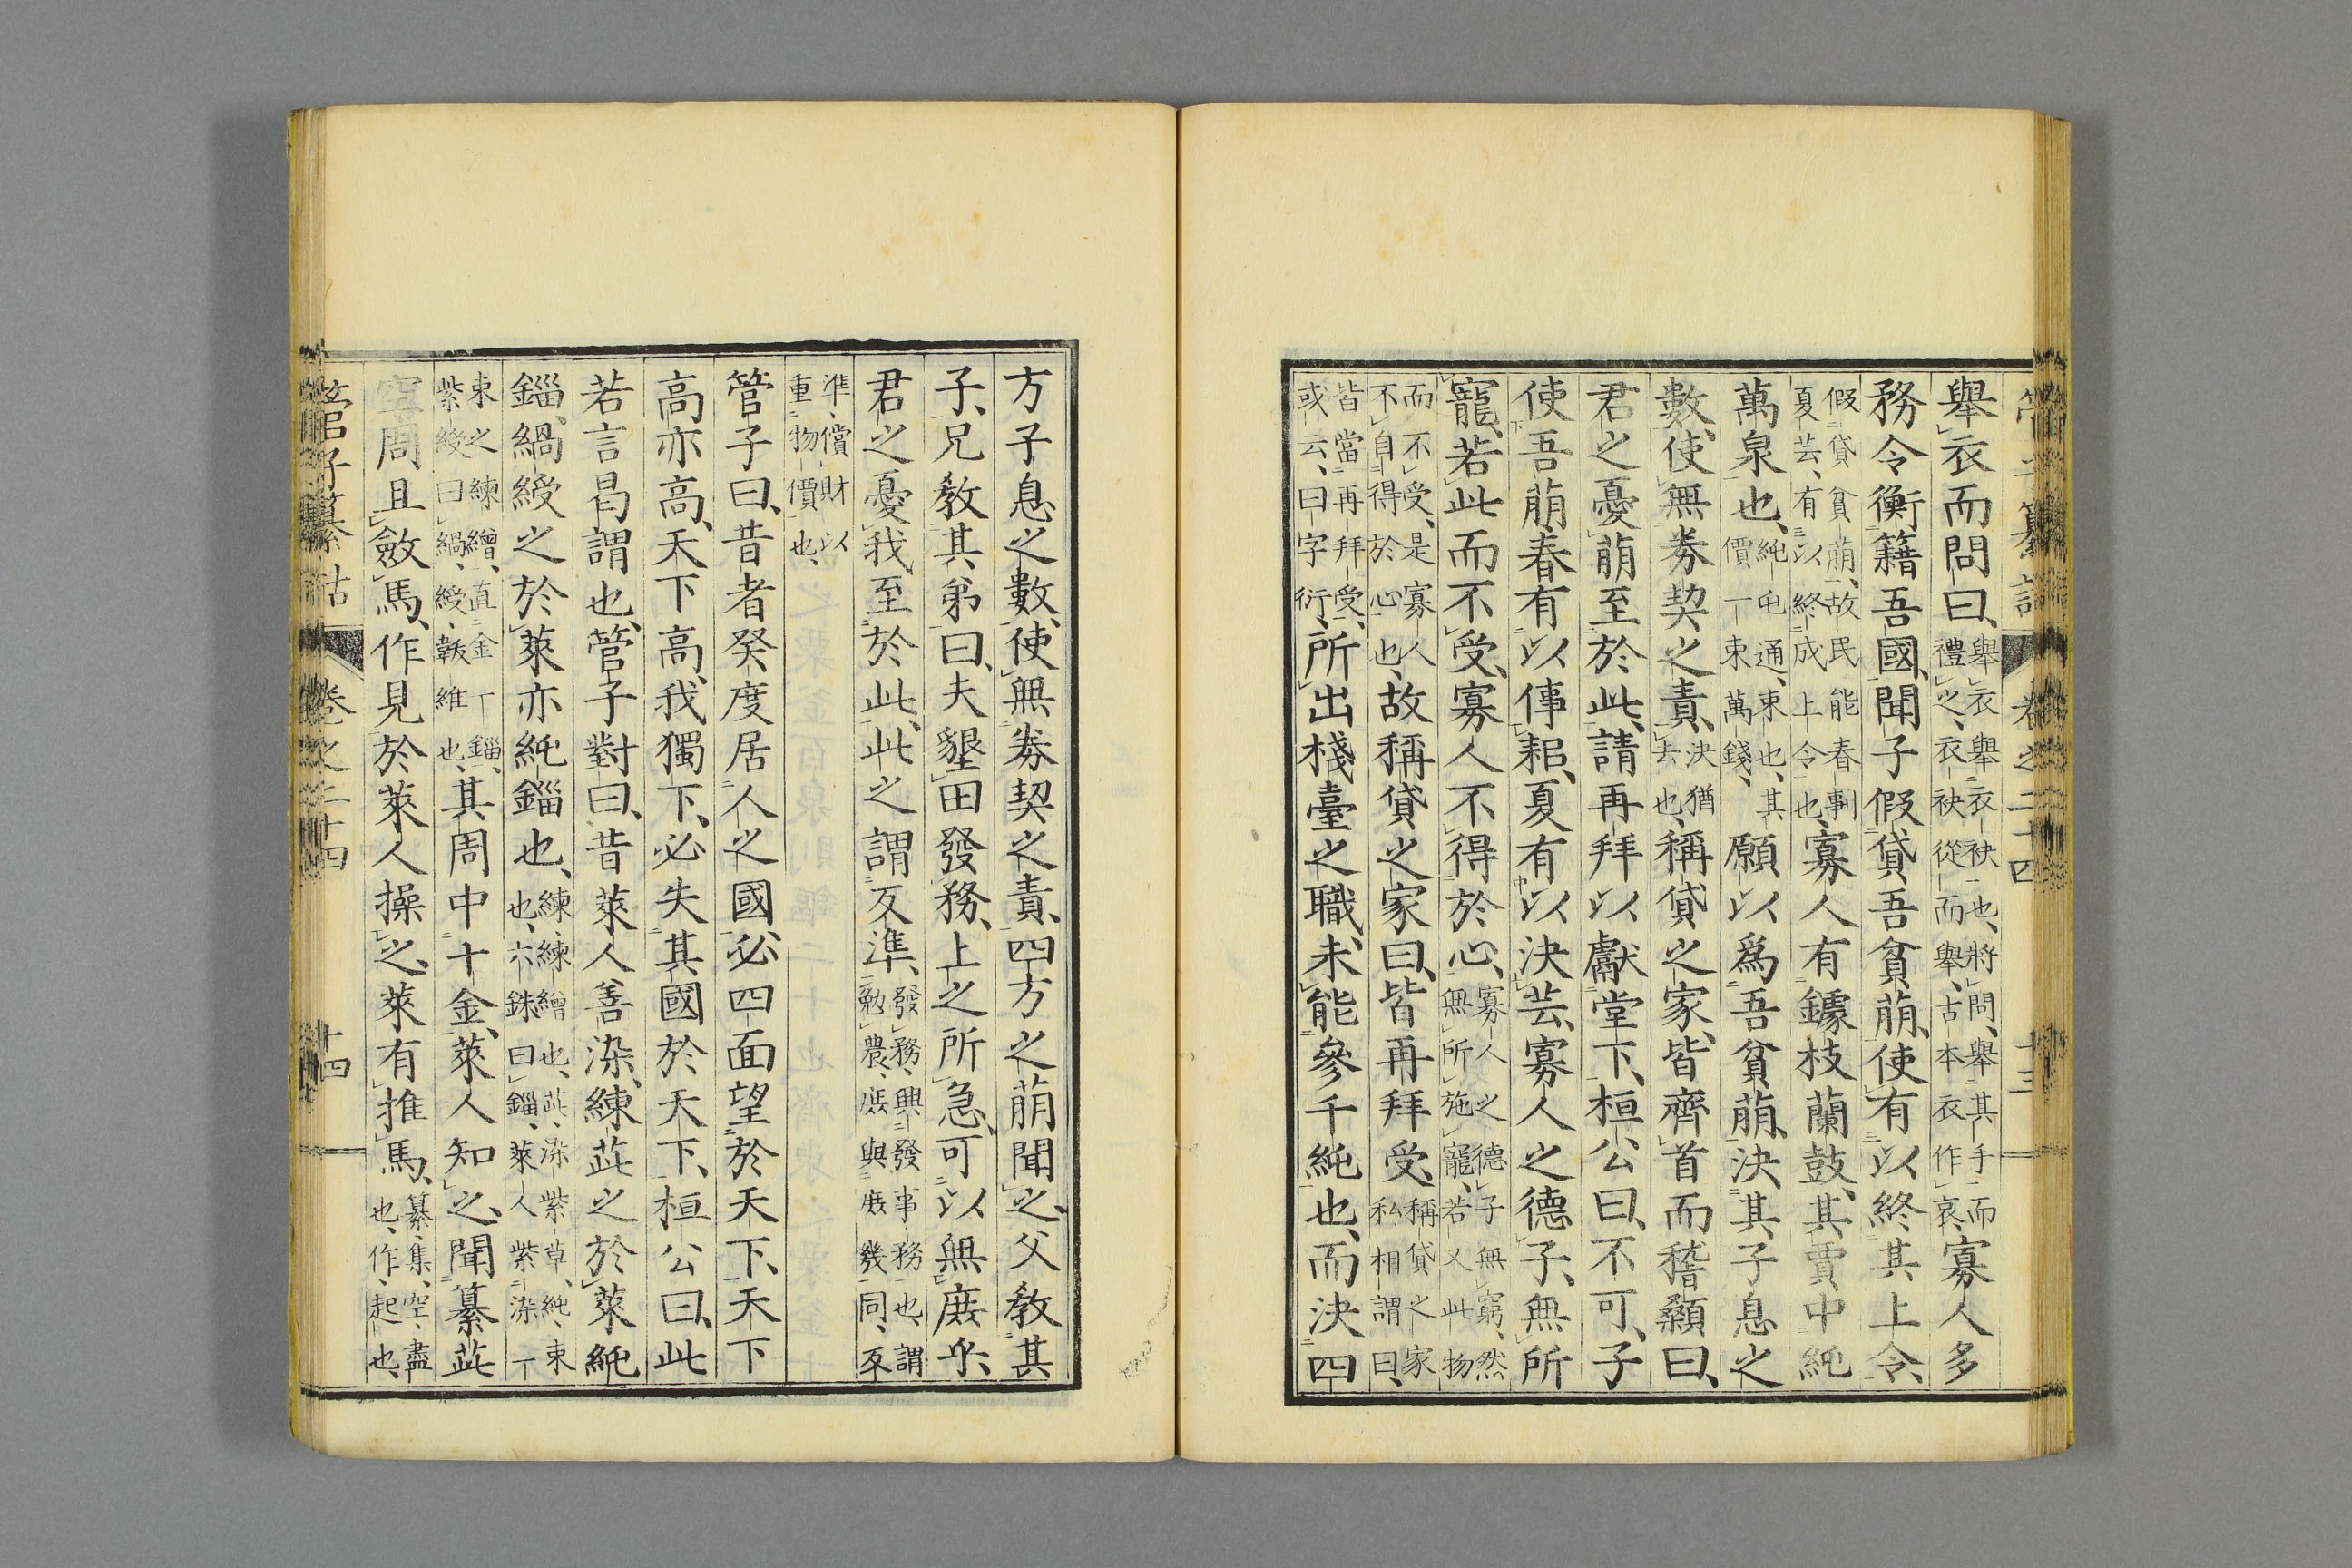 管子纂詁　卷之二十四　十三
舉衣而問曰、舉衣舉衣袂也、將問、舉其手而禮之、衣袂從而舉、古本衣作裒、寡人多
務令衡籍吾國、聞子假貸吾貧萌、使有以終其上令、
假貸貧萌、故民能春事夏芸、有以終成上令也、寡人有鐻枝蘭鼓、其賈中純
萬泉也、純屯通、束也、其價一束萬錢、願以爲吾貧萌、決其子息之
數、使無券契之責、決猶去也、稱貸之家、皆齊首而稽顙曰、
君之憂萌至於此、請再拜以獻堂下、桓公曰、不可、子
使吾萌、春有以倳耜、夏有以決芸、寡人之德子、無所
寵、若此而不受、寡人不得於心、寡人之德子無窮、然無所施寵、若又此物
而不受、是寡人不自得於心也、故稱貸之家曰、皆再拜受、稱貸之家私相謂曰、
皆當再拜受、或云、曰字衍、所出棧臺之職、未能參千純也、而決四
方子息之數、使無券契之責、四方之萌聞之、父敎其
子、兄敎其弟曰、夫墾田發務、上之所急、可以無庶乎、
君之憂我至於此、此之謂反準、發務、興發事務也、謂勉農、庶與庶幾同、反
準、償財以重物價也、
管子曰、昔者癸度居人之國、必四面望於天下、天下
高亦高、天下高、我獨下、必失其國於天下、桓公曰、此
若言曷謂也、管子對曰、昔萊人善染、練茈之於萊純
錙、緺綬之於萊亦純錙也、練、練繒也、茈、染紫草、純、束也、六銖曰錙、萊人紫染一
束之練繒、直金一錙、紫綬曰緺、綬、韍維也、其周中十金、萊人知之、聞纂茈
空周且斂馬、作見於萊人操之、萊有推馬、纂、集、空、盡也、作、起也、
管子纂詁　卷之二十四　十四